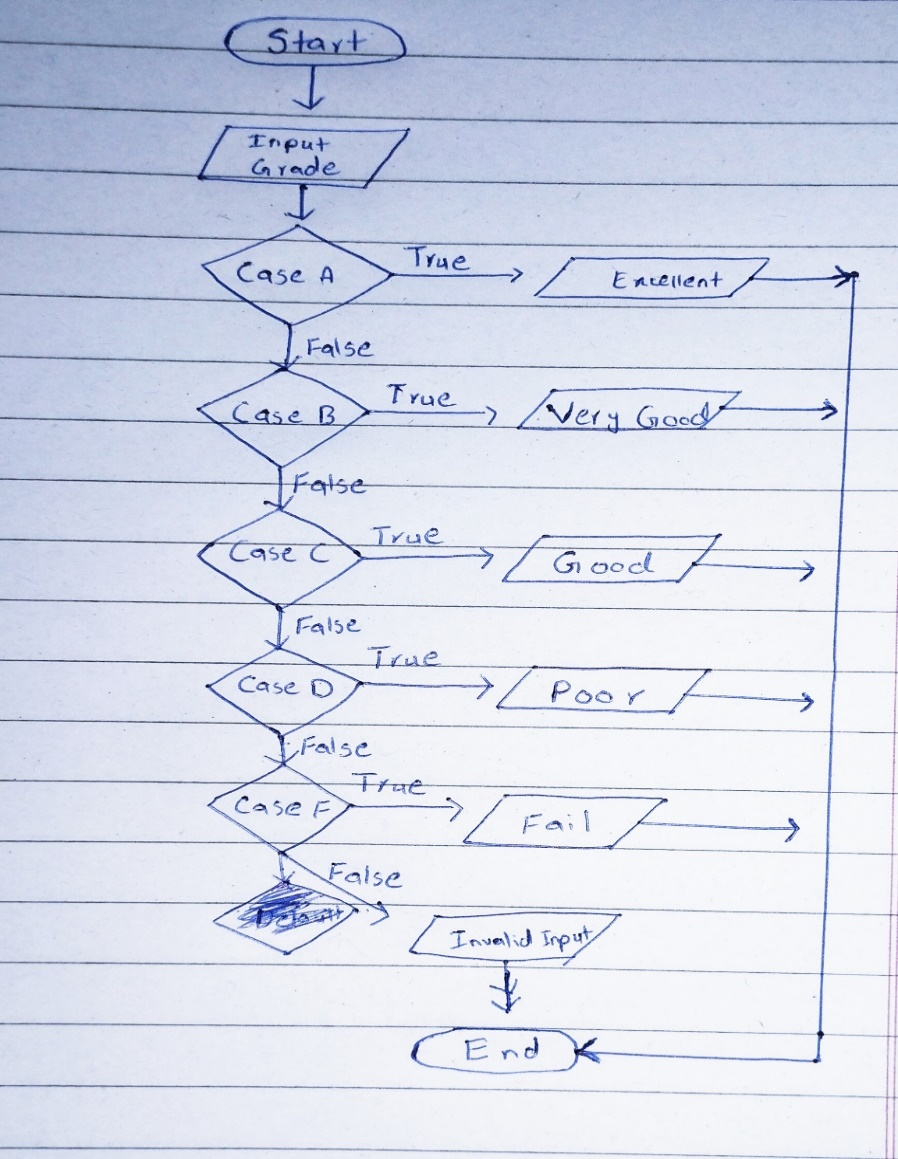 Start
Input
Grade
Case A
True
Excellent
False
Case B
True
Very Good
False
Case C
True
Good
False
Case D
True
Poor
False
Case F
True
Fail
False
Invalid Input
End